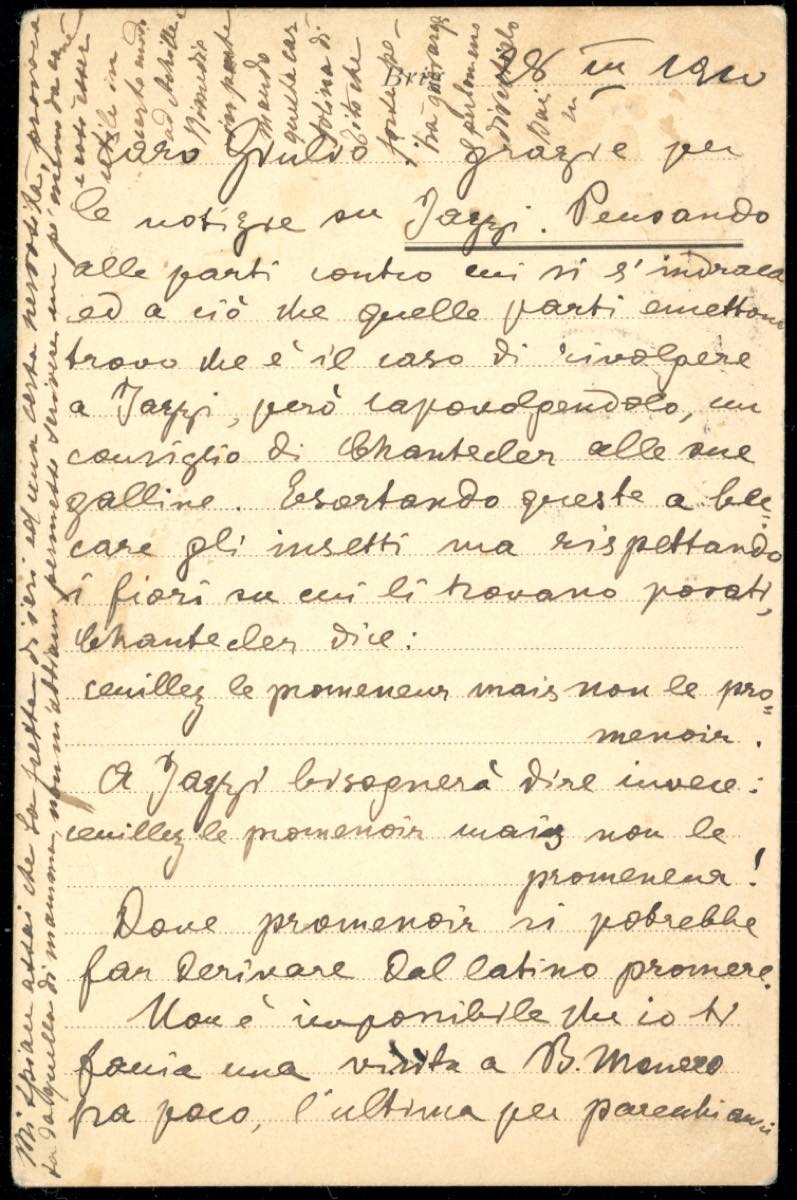 28 III 1910
Caro Giulio! grazie per
le notizie su Jazzi. Pensando
alle parti contro cui si s'indraca
ed a ciò che quelle parti emettono
trovo che è il caso di rivolgere
a Jazzi, però capovolgendolo, un
consiglio di Chantecler alle sue
galline. Esortando queste a bec
care gli insetti ma rispettando
i fiori su cui li trovano posati,
Chantecler dice:
ceuillez le promeneur mais non le pro
menoir.
A Jazzi bisognerà dire invece:
ceuillez le promenoir mais non le
promeneur!
Dove promenoir si potrebbe
far derivare dal latino promere.
Non è impossibile che io ti
faccia una visita a B. Monero
fra poco, l'ultima per parecchi anni
Mi spiace assai che la fretta di ieri ed una certa nervosità, provoca
ta da quella di mamma, non mi abbiano permesso scrivere un po' meno da
e così esser
utile in
questo modo
ad Achille
Rimedio
in parte
mando
questa car
tolina di
dito che
forse pe
tra quaranta
perlomeno